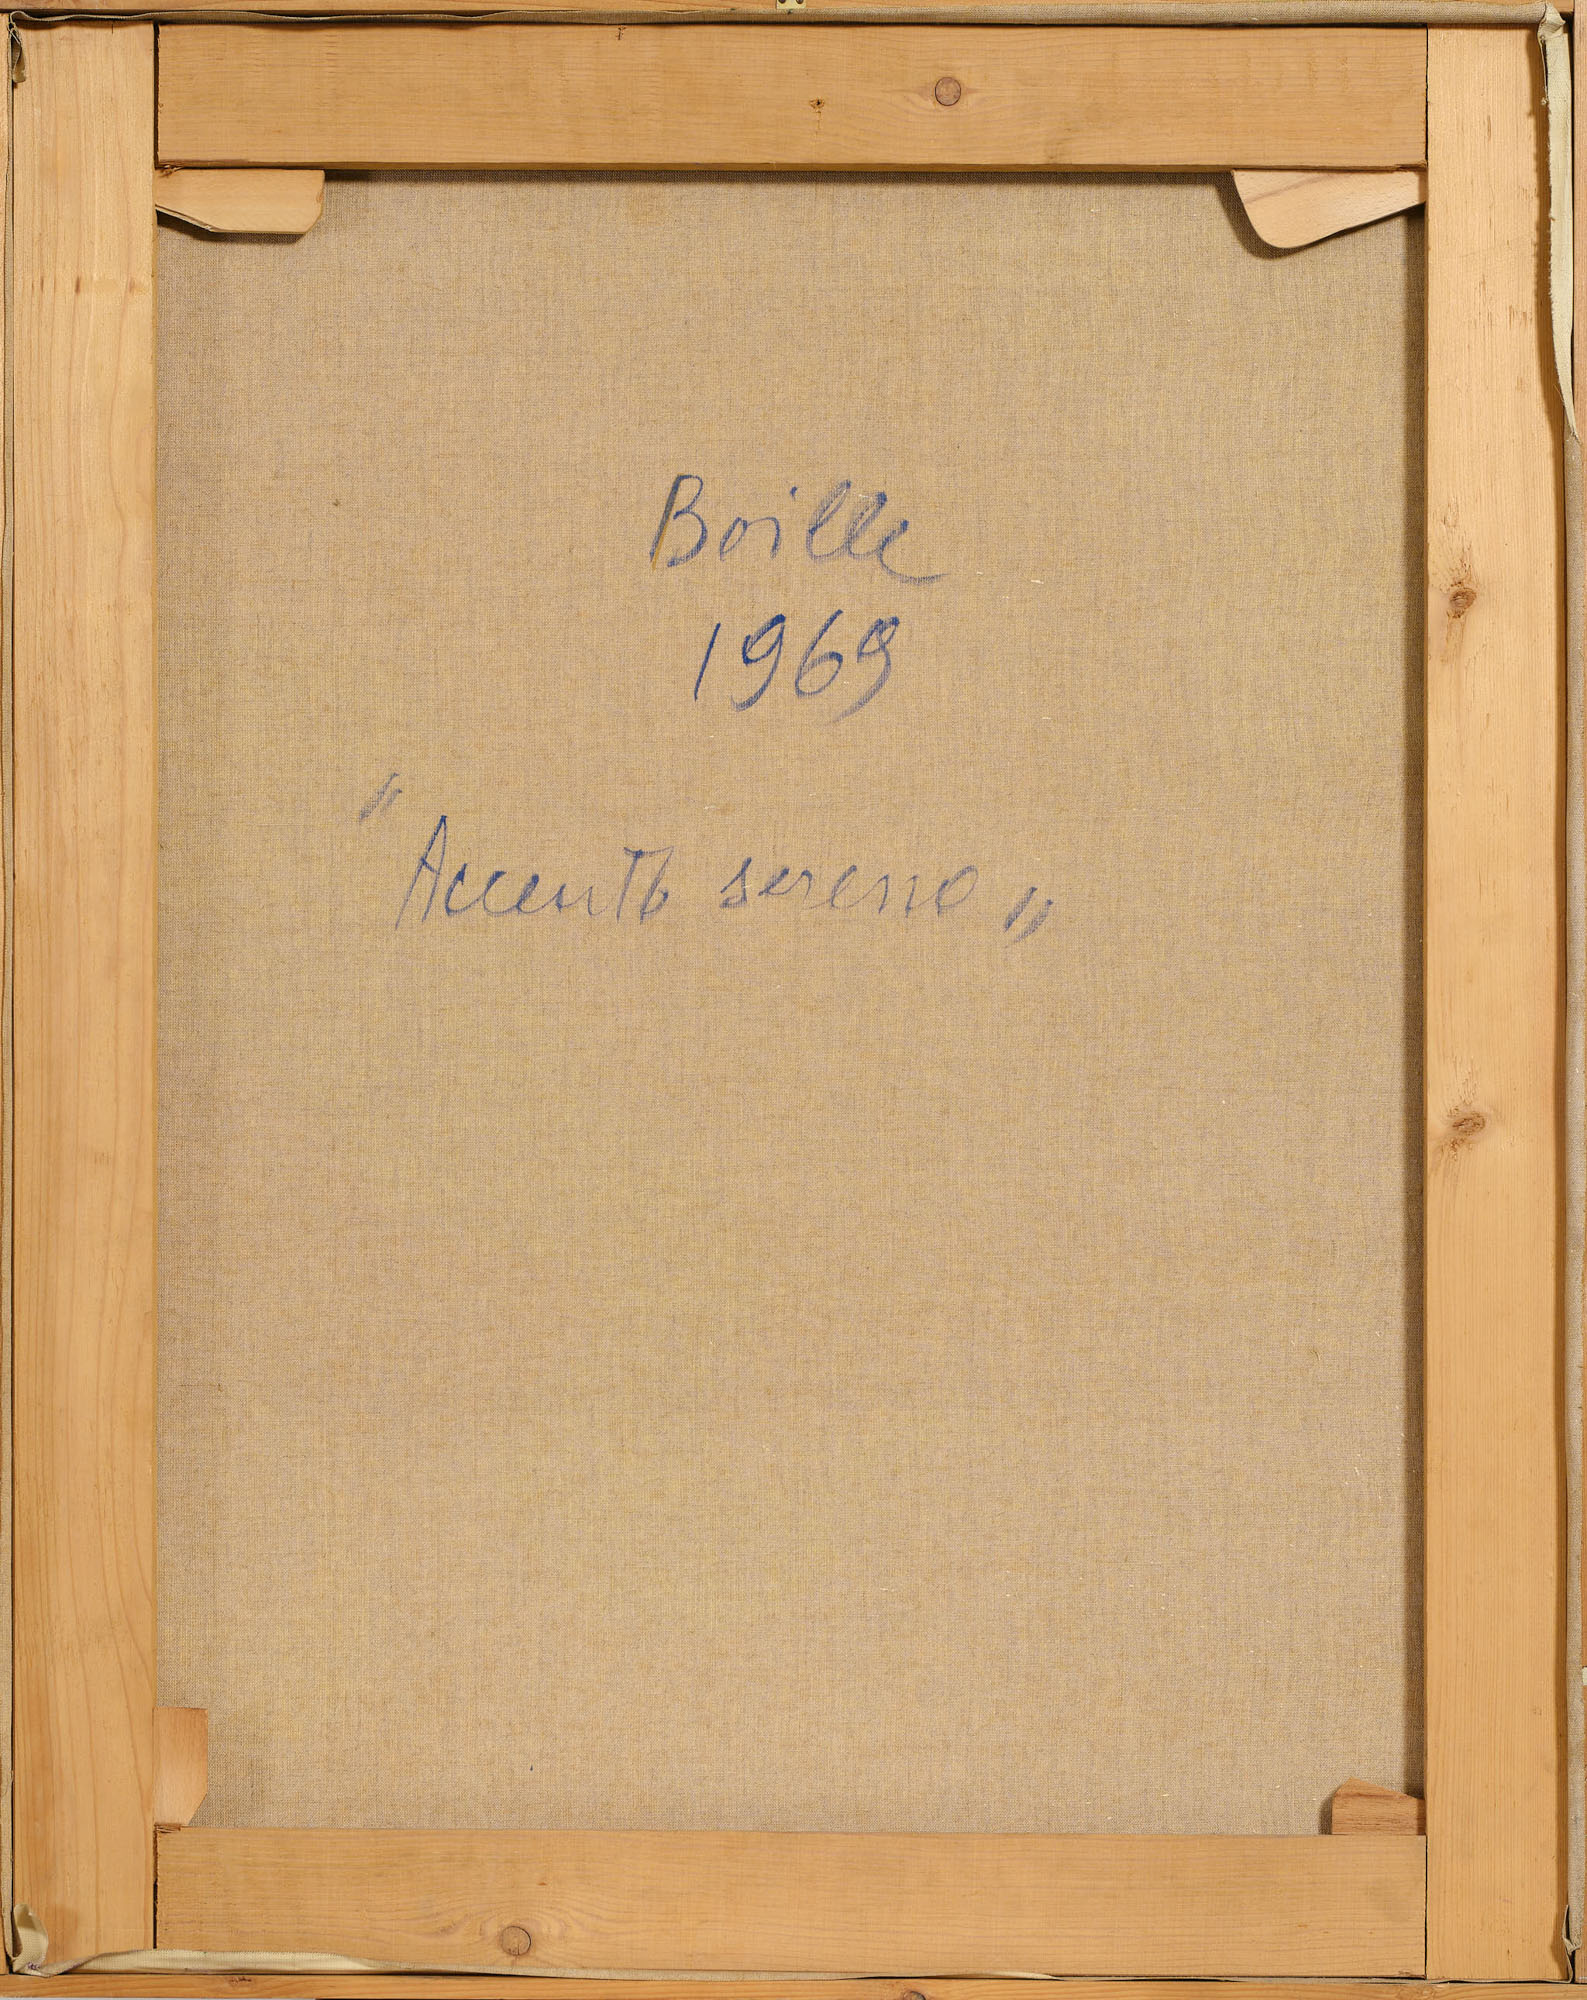 Boille
1969
"Accento sereno"